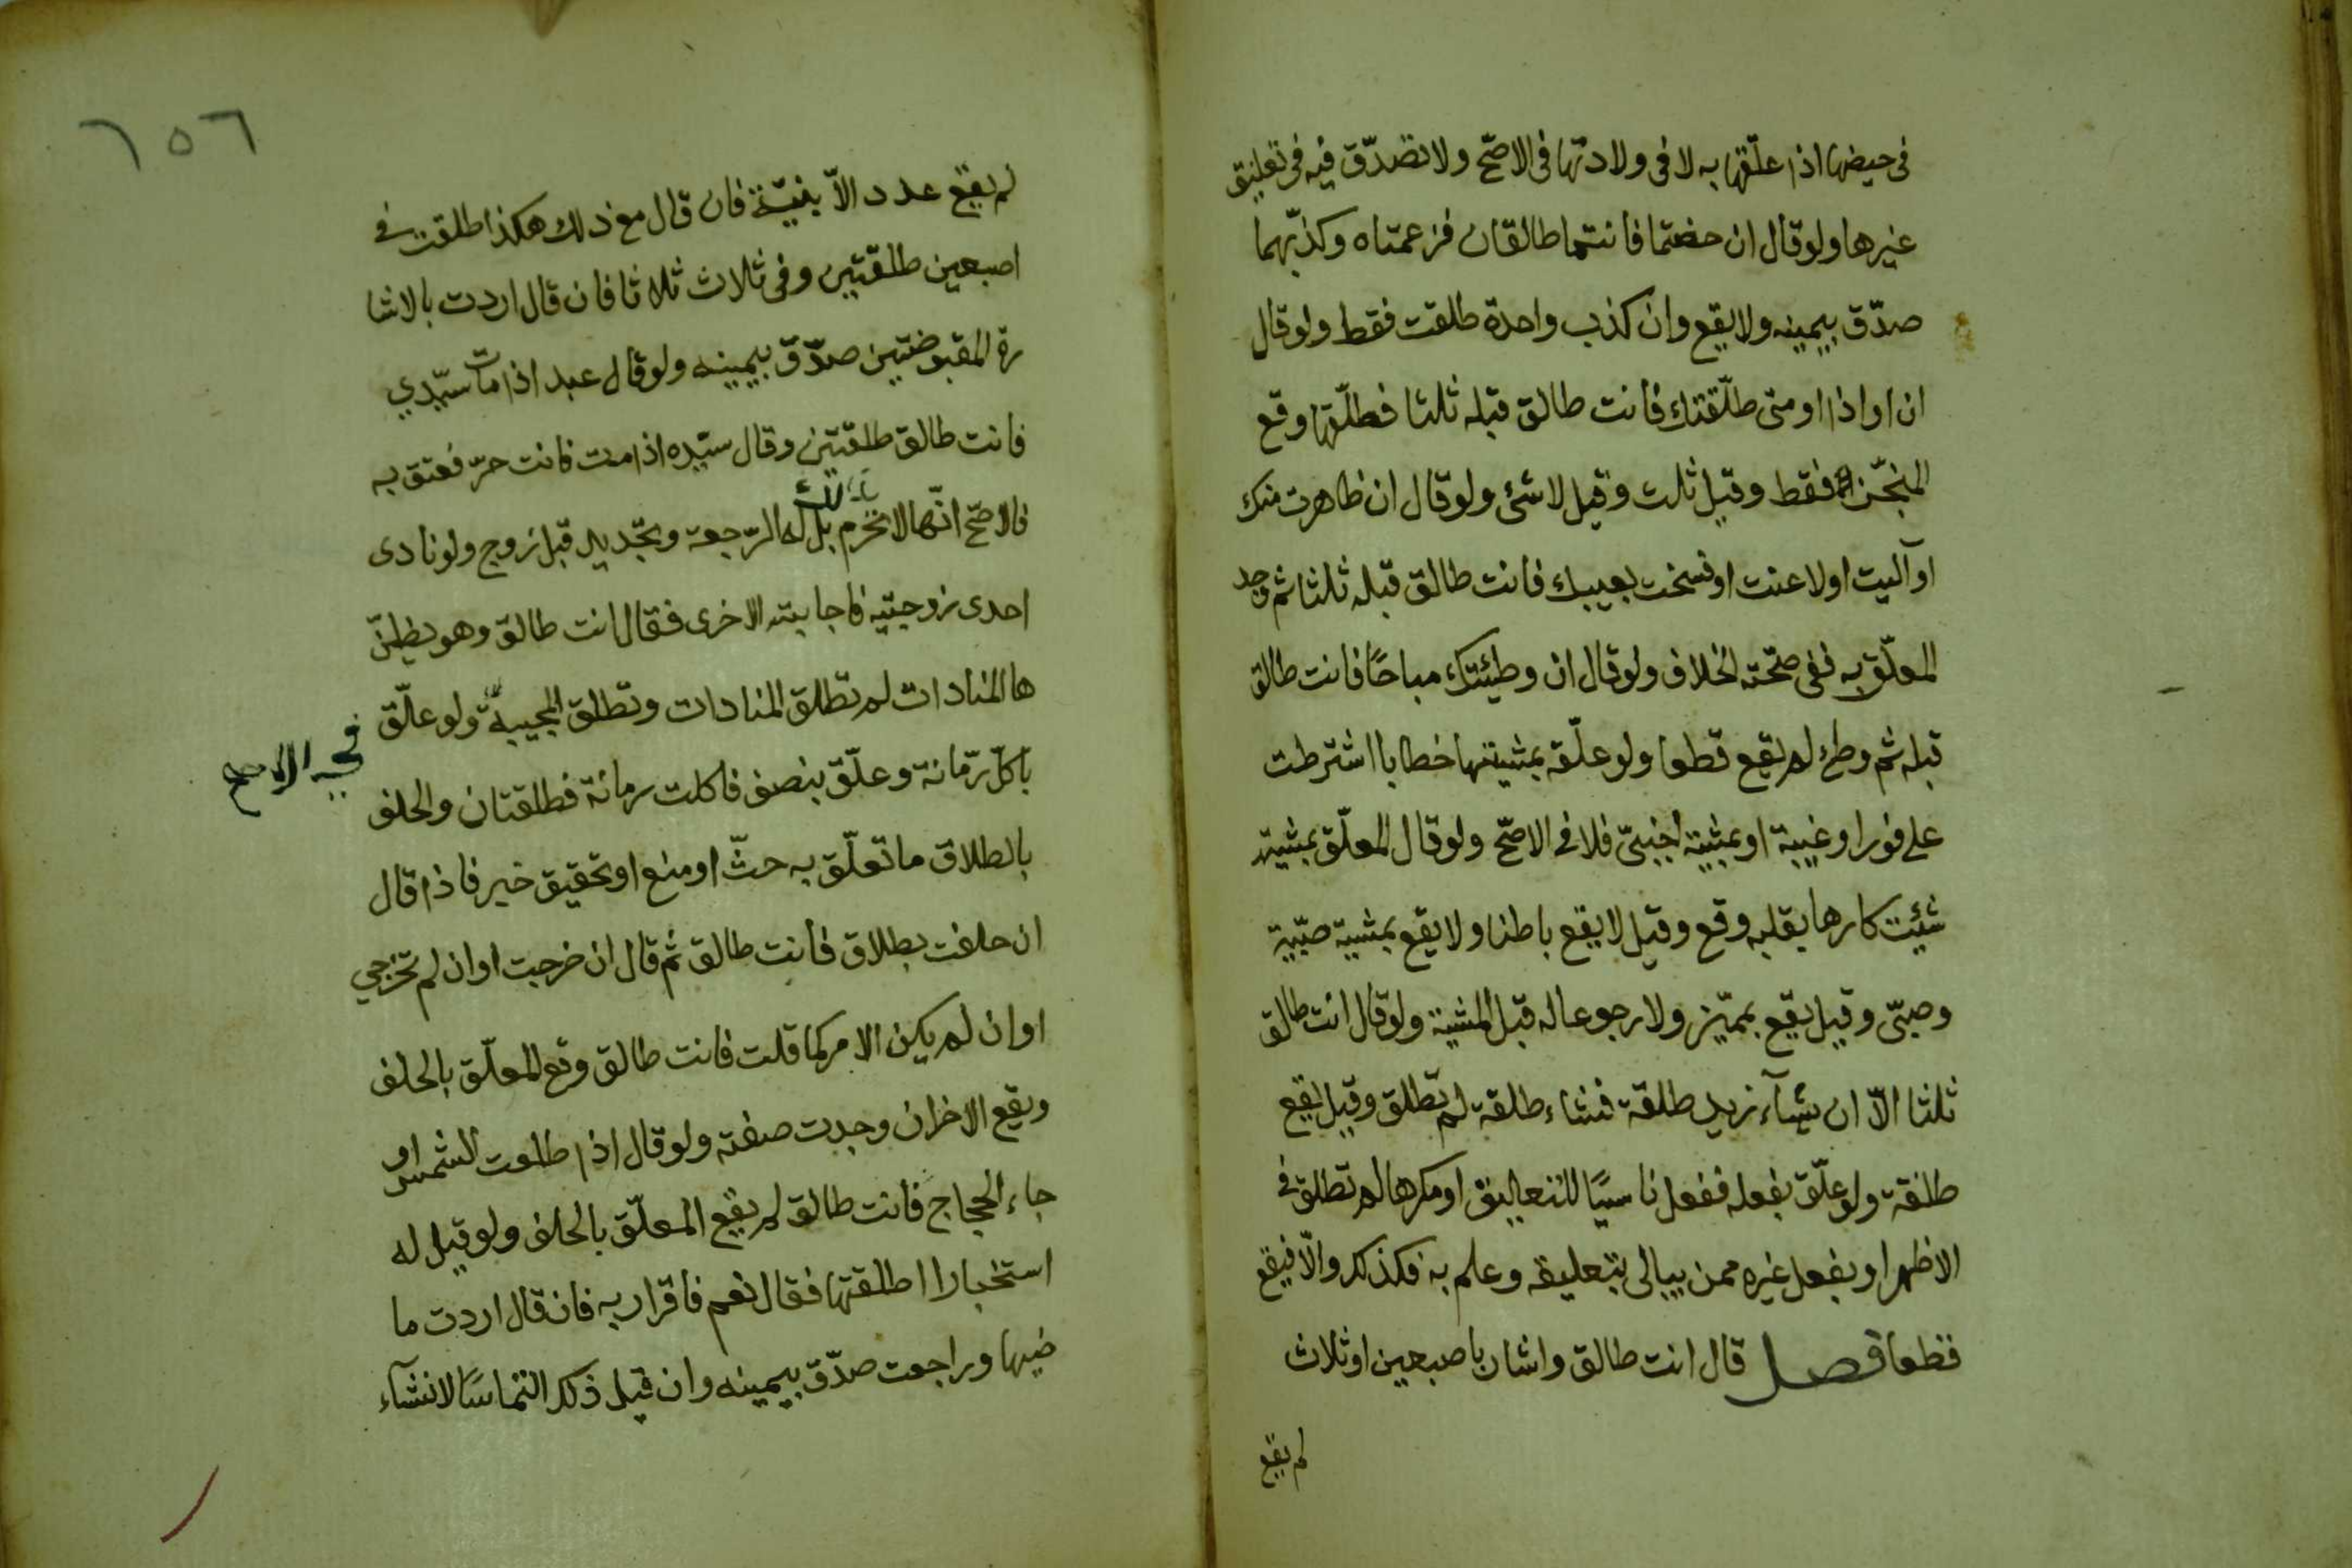 في حيضها اذا علّقها به لا في ولادتها في الاصحّ ولا تصدّق فيه في تعليق
غيرها ولو قال ان حضتما فانتما طالقان فزعمتاه وكذّبهما
صدّق بيمينه ولا يقع وان كذب واحدة طلقت فقط ولو قال
ان او اذا او متى طلّقتك فانت طالق قبله ثلثا فطلّقها وقع
المنجّز فقط وقيل ثلث وقيل لا شئ ولو قال ان ظاهرت منك
او آليت او لاعنت او فسخت بعيبك فانت طالق قبله ثلثا ثم وجد
المعلّق به ففي صحّته الخلاف ولو قال ان وطيئتك مباحًا فانت طالق
قبله ثم وطئ لم يقع قطعا ولو علّقه بمشيتها خطابا اشترطت
على فور او غيبة او بمشية اجنبيّ فلا في الاصحّ ولو قال المعلّق بمشيته
شيئت كارها بقلبه وقع وقيل لا يقع باطنا ولا يقع بمشيية صبيّية
وصبيّ وقيل يقع بمميّز ولا رجوع اله قبل المشية ولو قال انت طالق
ثلثا الاّ ان يشآء زيد طلقة فشاء طلقة لم تطلق وقيل يقع
طلقة ولو علّق بفعله ففعل ناسيًا للتعاليق او مكرها لم تطلق في
الاظهر او بفعل غيره ممن يبالى بتعليقه وعلم به فكذلك والّا فيقع
قطعا فصل قال انت طالق واشار باصبعين او ثلاث
لم يقع
٦٥٦
لم يقع عدد الاّ بنيّة فان قال مع ذلك هكذا طلقت في
اصبعين طلقتين وفي ثلاث ثلاثا فان قال اردت بالاشا
رة المقبوضتين صدّق بيمينه ولو قال عبد اذا مات سيّدي
فانت طالق طلقتين وقال سيّده اذا مت فانت حرّ فعتق به
فالاصحّ انّها لا تحرم بل له الرّجعة وتجّديد قبل زوج ولو نادى
احدى زوجتيه فاجابته الاخرى فقال انت طالق وهو يظنّ
ها المنادات لم تطلق المنادات وتطلق المجيبة ولو علّق
في الاصح
باكل رّمانة وعلّق بنصف فاكلت رمانة فطلقتان والحلف
بالطلاق ما تعلّق به حثّ او منع او تحقيق خبر فاذا قال
ان حلفت بطلاق فانت طالق ثم قال ان خرجت او ان لم تخرجي
او ان لم يكن الامر كما قلت فانت طالق وقع المعلّق بالحلف
ويقع الاخر ان وجدت صفته ولو قال اذا طلعت الشمس او
جاء الحجاج فانت طالق لم يقع المعلّق بالحلف ولو قيل له
استخبارا اطلقتها فقال نعم فاقرار به فان قال اردت ما
ضيها وراجعت صدّق بيمينه وان قيل ذلك التماسًا لانشآء